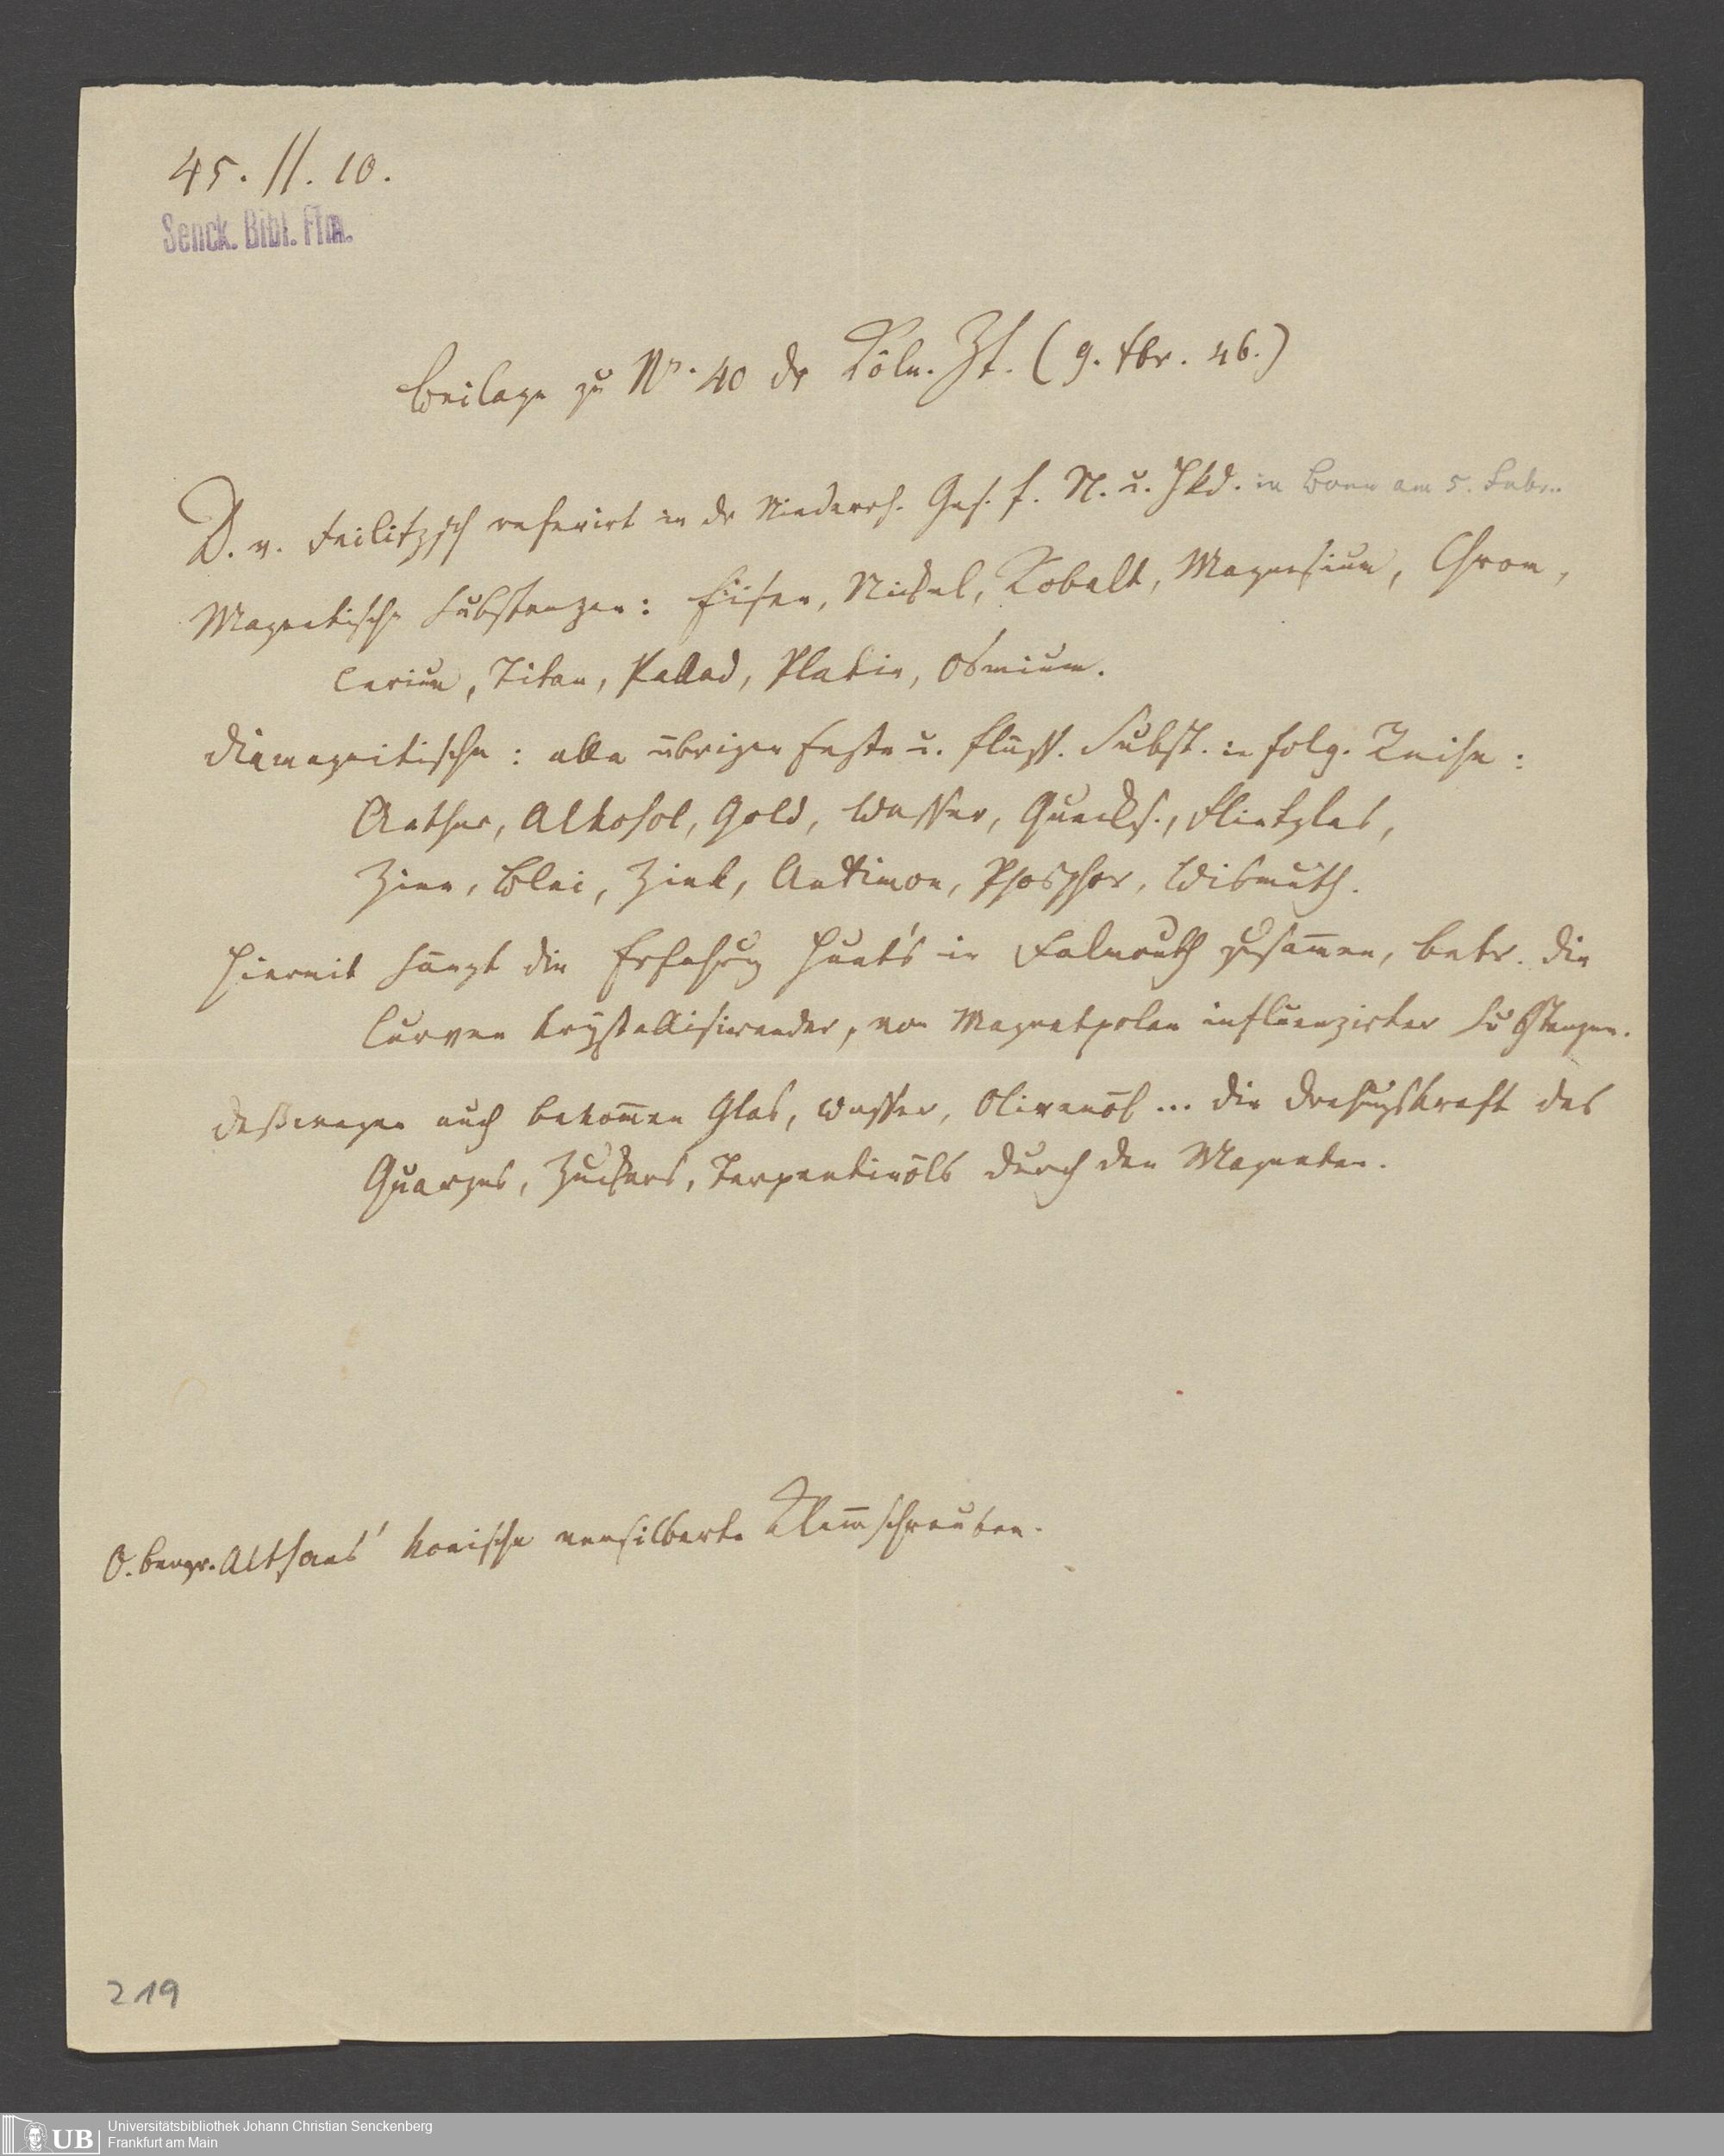 45. II. 10.
Senck. Bibl. Ffm.
Beilage zu Nr. 40 dr Köln. Zt. (9. Fbr. 46.)
D. v. Feilitzsch referirt in dr Niederrh. Ges. f. N. u. Hkd. in Bonn am 5. Febr.
Magnetische Substanzen: Eisen, Nickel, Kobalt, Magnesium, Chrom,
Cerium, Titan, Pallad, Platin, Osmium.
diamagnitische: alle übrigen feste u. flüss. Subst. in folg. Reihe:
Aether, Alkohol, Gold, Wasser, Quecks., Flintglas,
Zinn, Blei, Zink, Antimon, Phosphor, Wismuth.
Hiermit hängt die Erfahrung Hunt's in Falmouth zusam̄en, betr. die
Curven krystallisirender, von Magnetpolen influenzirter Substanzen.
Deßwegen auch bekom̄en Glas, Wasser, Olivenöl ... die Drehungskraft des
Quarzes, Zuckers, Terpentinöls durch den Magneten.
O. bergr. Althans' konische versilberte Klem̄schrauben.
219
UB
Universitätsbibliothek Johann Christian Senckenberg
Frankfurt am Main